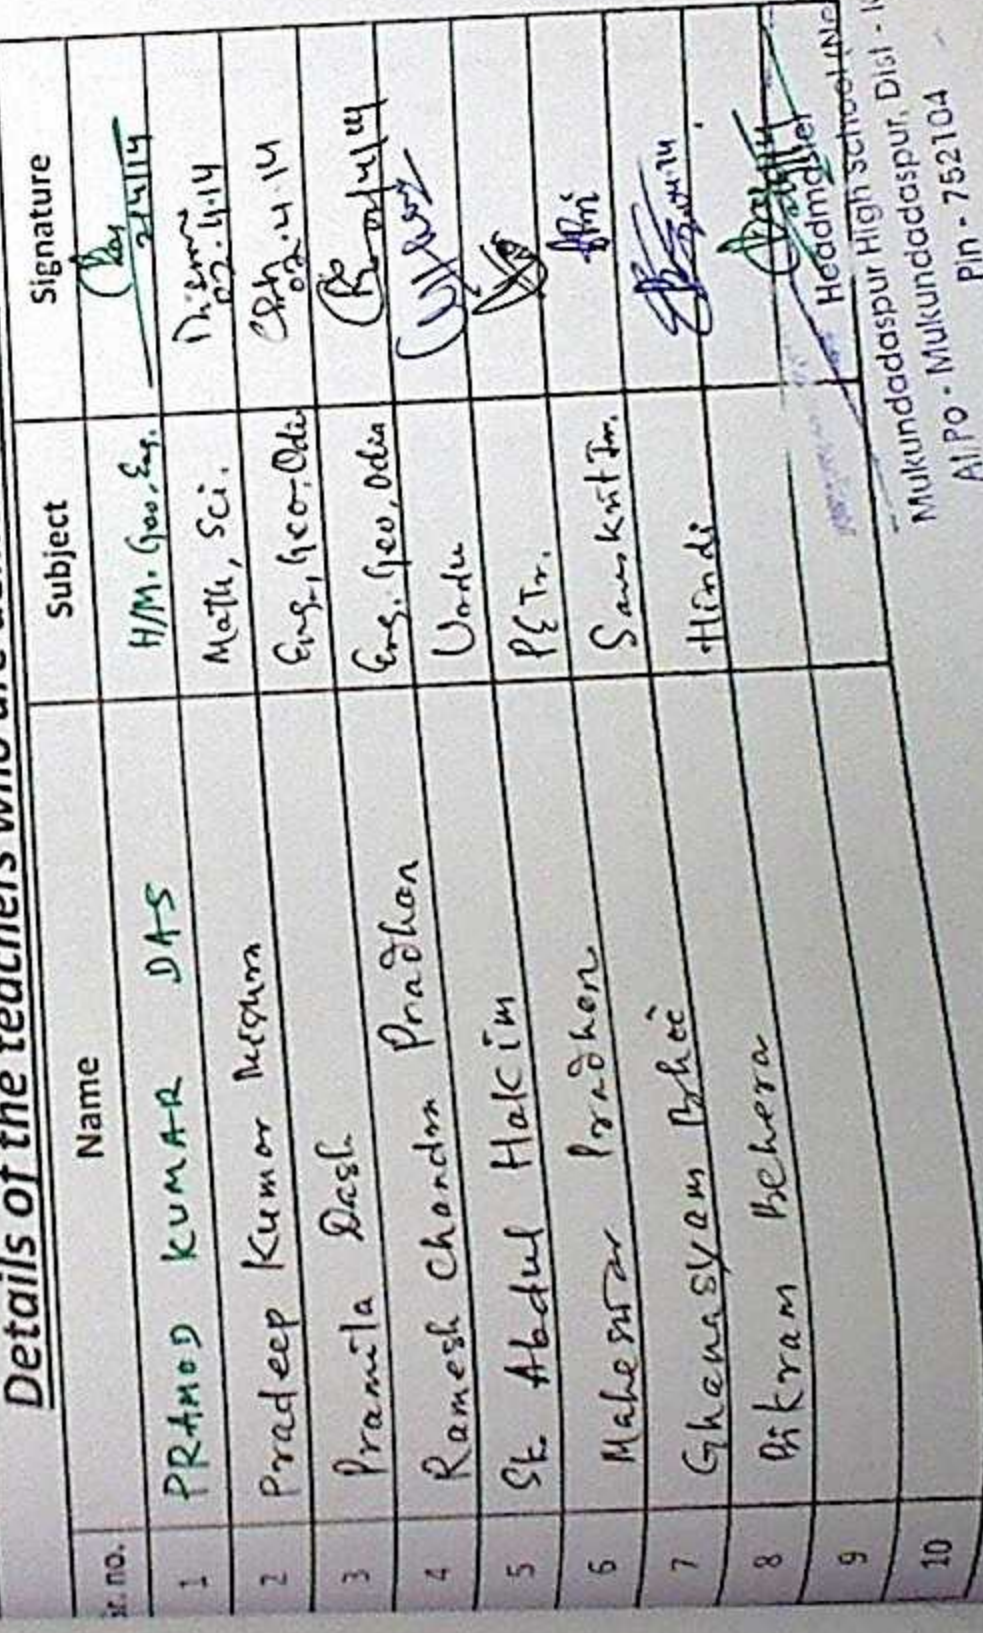 Details of the teachers who are
Sr. no. Name Subject Signature
1 PRAMOD KUMAR DAS H/M. Geo, Eng. Das 2/4/14
2 Pradeep Kumar Math, Sci. 02.4.14
3 Pramila Dash Eng, Geo, Odi 02.4.14
4 Ramesh Chandra Pradhan Eng, Geo, Odia
5 Sk. Abdul Hakim Urdu
6 Maheswar Pradhan PETr.
7 Ghanasyam Bhoi Sanskrit Tr.
8 Bikram Behera Hindi
9
10
Headmaster
Mukundadaspur High School (No
At/PO - Mukundadaspur, Dist -
Pin - 752104